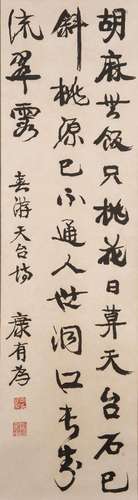 胡麻共飯只桃花日莫天台石已
斜桃源已不通人世洞口長
流翠霞
春游天台詩
康有為